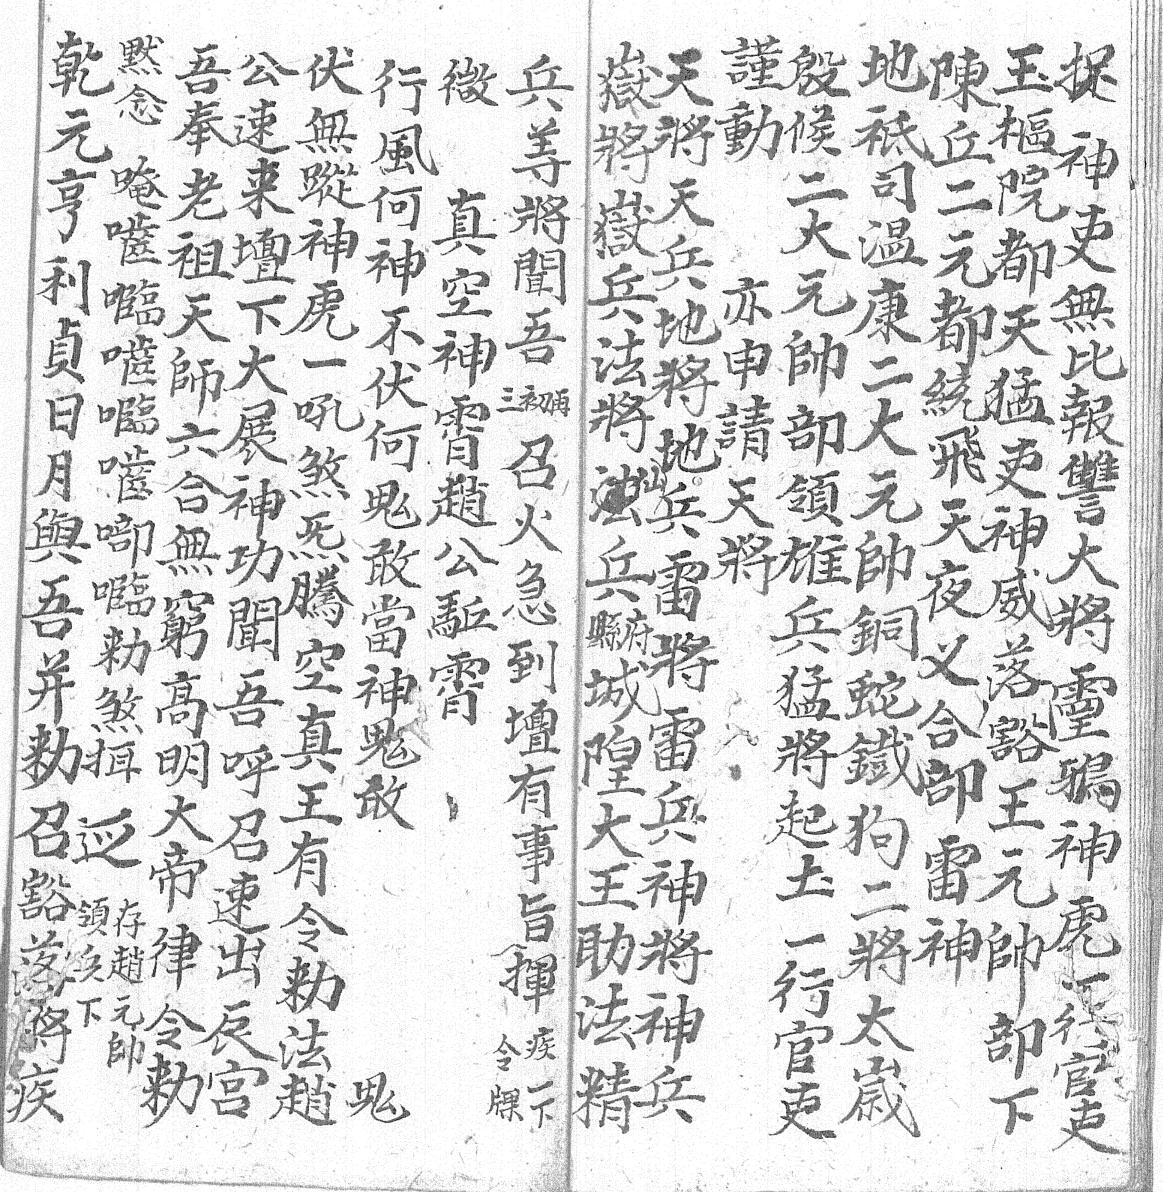 捉神吏無比報讐大將靈鴉神虎一行官吏
玉樞院都天猛吏神威落豁王元帥部下
陳丘二元都統飛天夜乂合部雷神
地祇司溫康二大元帥銅蛇鐵狗二將太歲
殷候二大元帥部領雄兵猛將起土一行官吏
謹動 亦申請天將
天將天兵地將地兵雷將雷兵神將神兵
嶽將嶽兵法將法兵府縣城隍大王助法精
兵等將聞吾 召火急到壇有事旨揮 疾一下令牌
徵 真空神霄趙公駈霄
行風何神不伏何鬼敢當神鬼敢 鬼
伏無蹤神虎一吼煞炁騰空真王有令勑法趙
公速來壇下大展神功聞吾呼召速出辰宮
吾奉老祖天師六合無窮高明大帝律令勑
默念 唵𡃤囓𡃤囓 勑煞 存趙元帥領兵下
乾元亨利貞日月與吾并勑召豁落將疾